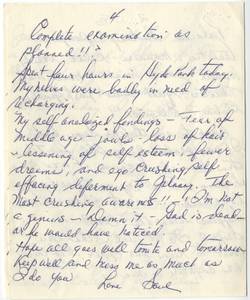 4
Complete examination as
planned!!?
Spent four hours in Hyde Park today.
My nerves were badly in need of
recharging.
My self analized findings - Fear of
middle age - jowls - loss of hair
lessening of self esteem, fewer
dreams, and ego crushing self
effacing deferment to The
most crushing awareness!! - I'm not
a genius - Damn it - God is dead
or he would have noticed.
Hope all goes well tonite and tomorrow
Keep well and miss me as much as
I do you
Love Dave